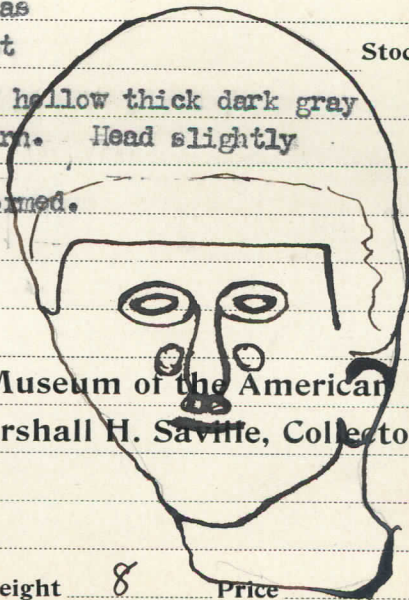 as
t
Stoc
hollow thick dark gray
rm. Head slightly
rmed.
Museum of the American
rshall H. Saville, Collecto
eight 8 Price